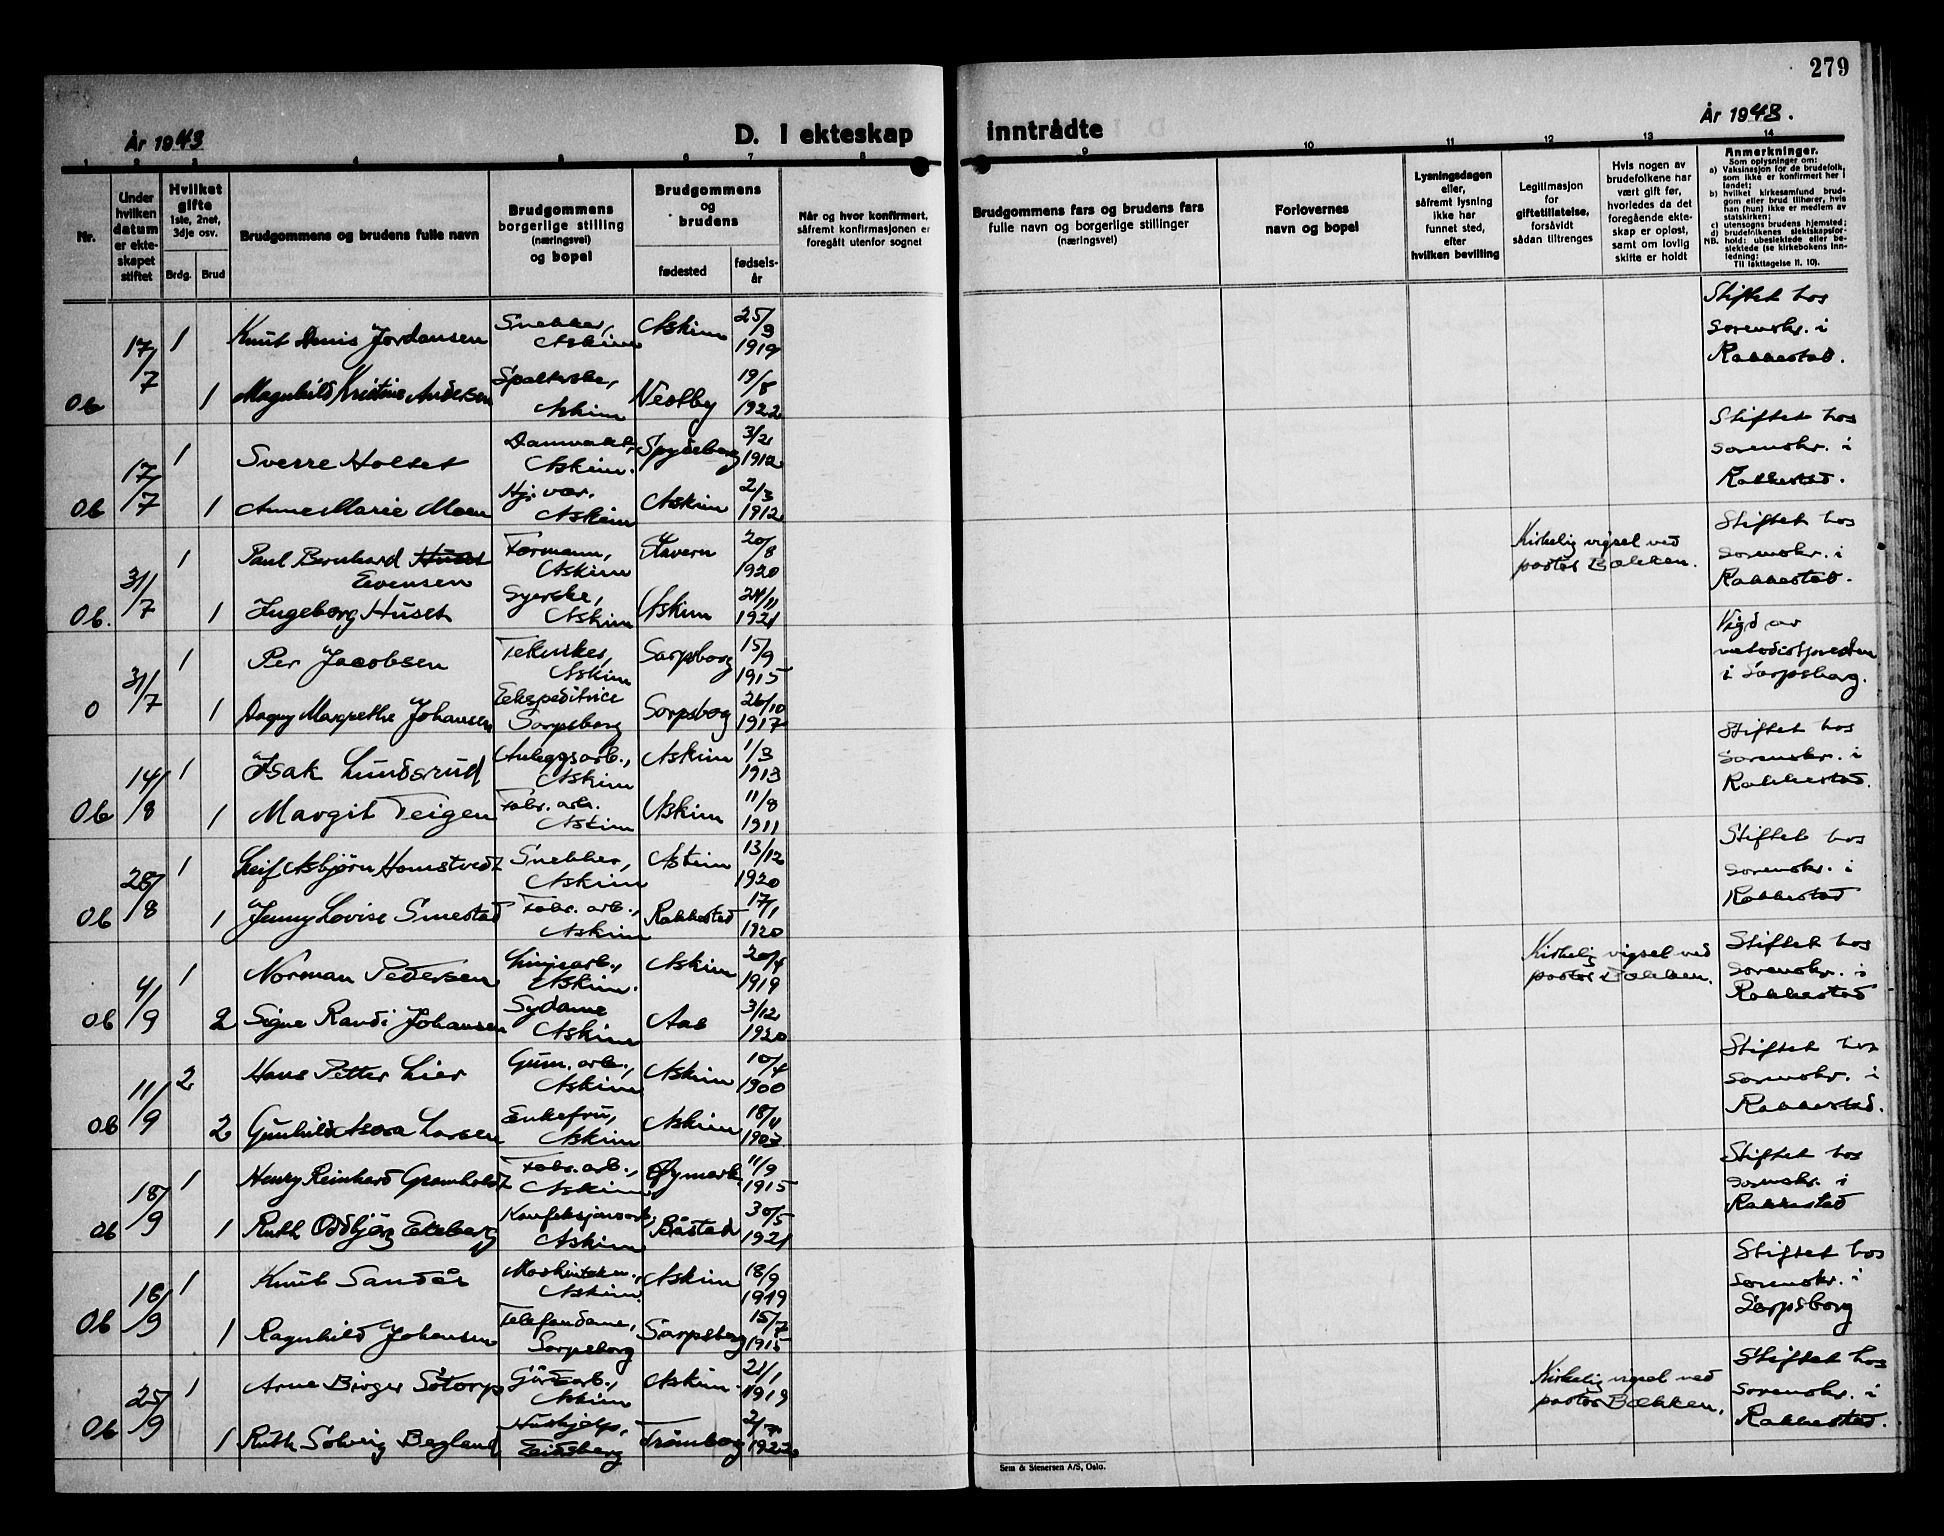 279
År 1943
D. I ekteskap inntrådte
År 1943.
1 2 3 4 5 6 7 8 9 10 11 12 13 14
Nr.
Under hvilken datum er ekteskapet stiftet
Hvilket gifte 1ste, 2net, 3dje osv.
Brdg. Brud
Brudgommens og brudens fulle navn
Brudgommens borgerlige stilling (næringsvei) og bopel
Brudgommens og brudens
fødested
fødselsår
Når og hvor konfirmert, såfremt konfirmasjonen er foregått utenfor sognet
Brudgommens fars og brudens fars fulle navn og borgerlige stillinger (næringsvei)
Forlovernes navn og bopel
Lysningsdagen eller, såfremt lysning ikke har funnet sted, efter hvilken bevilling
Legitimasjon for giftetillatelse, forsåvidt sådan tiltrenges
Hvis nogen av brudefolkene har vært gift før, hvorledes da det foregående ekteskap er opløst, samt om lovlig skifte er holdt
Anmerkninger.
Som oplysninger om:
a) Vaksinasjon for de brudefolk, som ikke er konfirmert her i landet;
b) hvilket kirkesamfund brudgom eller brud tilhører, hvis han (hun) ikke er medlem av statskirken;
c) utensogns brudens hjemsted;
d) brudefolkenes slektskapsforhold: ubeslektede eller beslektede (se kirkebokens innledning:
NB.
Til iakttagelse II. 10).
17/7 1 Knut Denis Jordansen Snekker, Askim Askim 25/3 1919 Stiftet hos sorenskr. i Rakkestad.
Ob 1 Magnhild Kristine Andersen Askim Vestby 19/8 1922
17/7 1 Sverre Holtet Damvakt, Askim. Spydeberg 3/2 1912 Stiftet hos sorenskr. i Rakkestad.
Ob 1 Anne Marie Moen Hj. vær. Askim Askim 2/3 1912
31/7 1 Paul Bernhard Huset Evensen Formann, Askim Stavern 20/8 1920 Kirkelig vigsel ved pastor Bækken. Stiftet hos sorenskr. i Rakkestad.
Ob. 1 Ingeborg Huset Syerske, Askim Askim 24/11 1921
31/7 1 Per Jacobsen Tekniker, Askim Sarpsborg 15/9 1915 Vigd av metodistpresten i Sarpsborg.
O 1 Dagny Margrethe Johansen Ekspeditrice Sarpsborg Sarpsborg 26/10 1917
14/8 1 Isak Lundsrud Anleggsarb., Askim Askim 1/3 1913 Stiftet hos sorenskr. i Rakkestad.
Ob 1 Margit Teigen Fabr. arb. Askim Askim 11/8 1911
28/8 1 Leif Asbjørn Homstvedt Snekker, Askim Askim 13/12 1920 Stiftet hos sorenskr. i Rakkestad
Ob 1 Jenny Lovise Smestad Fabr. arb., Askim Rakkestad 17/1 1920
4/9 1 Norman Pedersen Linjearb., Askim. Askim 20/4 1919 Kirkelig vigsel ved pastor Bækken. Stiftet hos sorenskr. i Rakkestad
Ob 2 Signe Randi Johansen Sydame Askim Aas 3/12 1920
11/9 2 Hans Petter Lier Gum. arb., Askim Askim 10/4 1900 Stiftet hos sorenskr. i Rakkestad.
Ob 2 Gunhild Asora Larsen Enkefru, Askim Askim 18/11 1903
18/9 1 Henry Reinhard Gramholdt Fabr. arb., Askim Øymark 11/9 1915 Stiftet hos sorenskr. i Rakkestad
Ob 1 Ruth Oddbjørg Ekeberg Konfeksjonsarb. Askim Båstad 30/5 1921
18/9 1 Knut Sandår Askim Askim 18/9 1919 Stiftet hos sorenskr. i Sarpsborg
Ob 1 Ragnhild Johansen Telefondame, Sarpsborg Sarpsborg 15/7 1915
25/9 1 Arne Birger Sotorp Gårdsarb., Askim Askim 21/1 1919 Kirkelig vigsel ved pastor Bækken. Stiftet hos sorenskr. i Rakkestad.
Ob 1 Ruth Solveig Begland Hushjelp, Eidsberg Trømborg 1922
Sem & Stenersen A/S, Oslo.